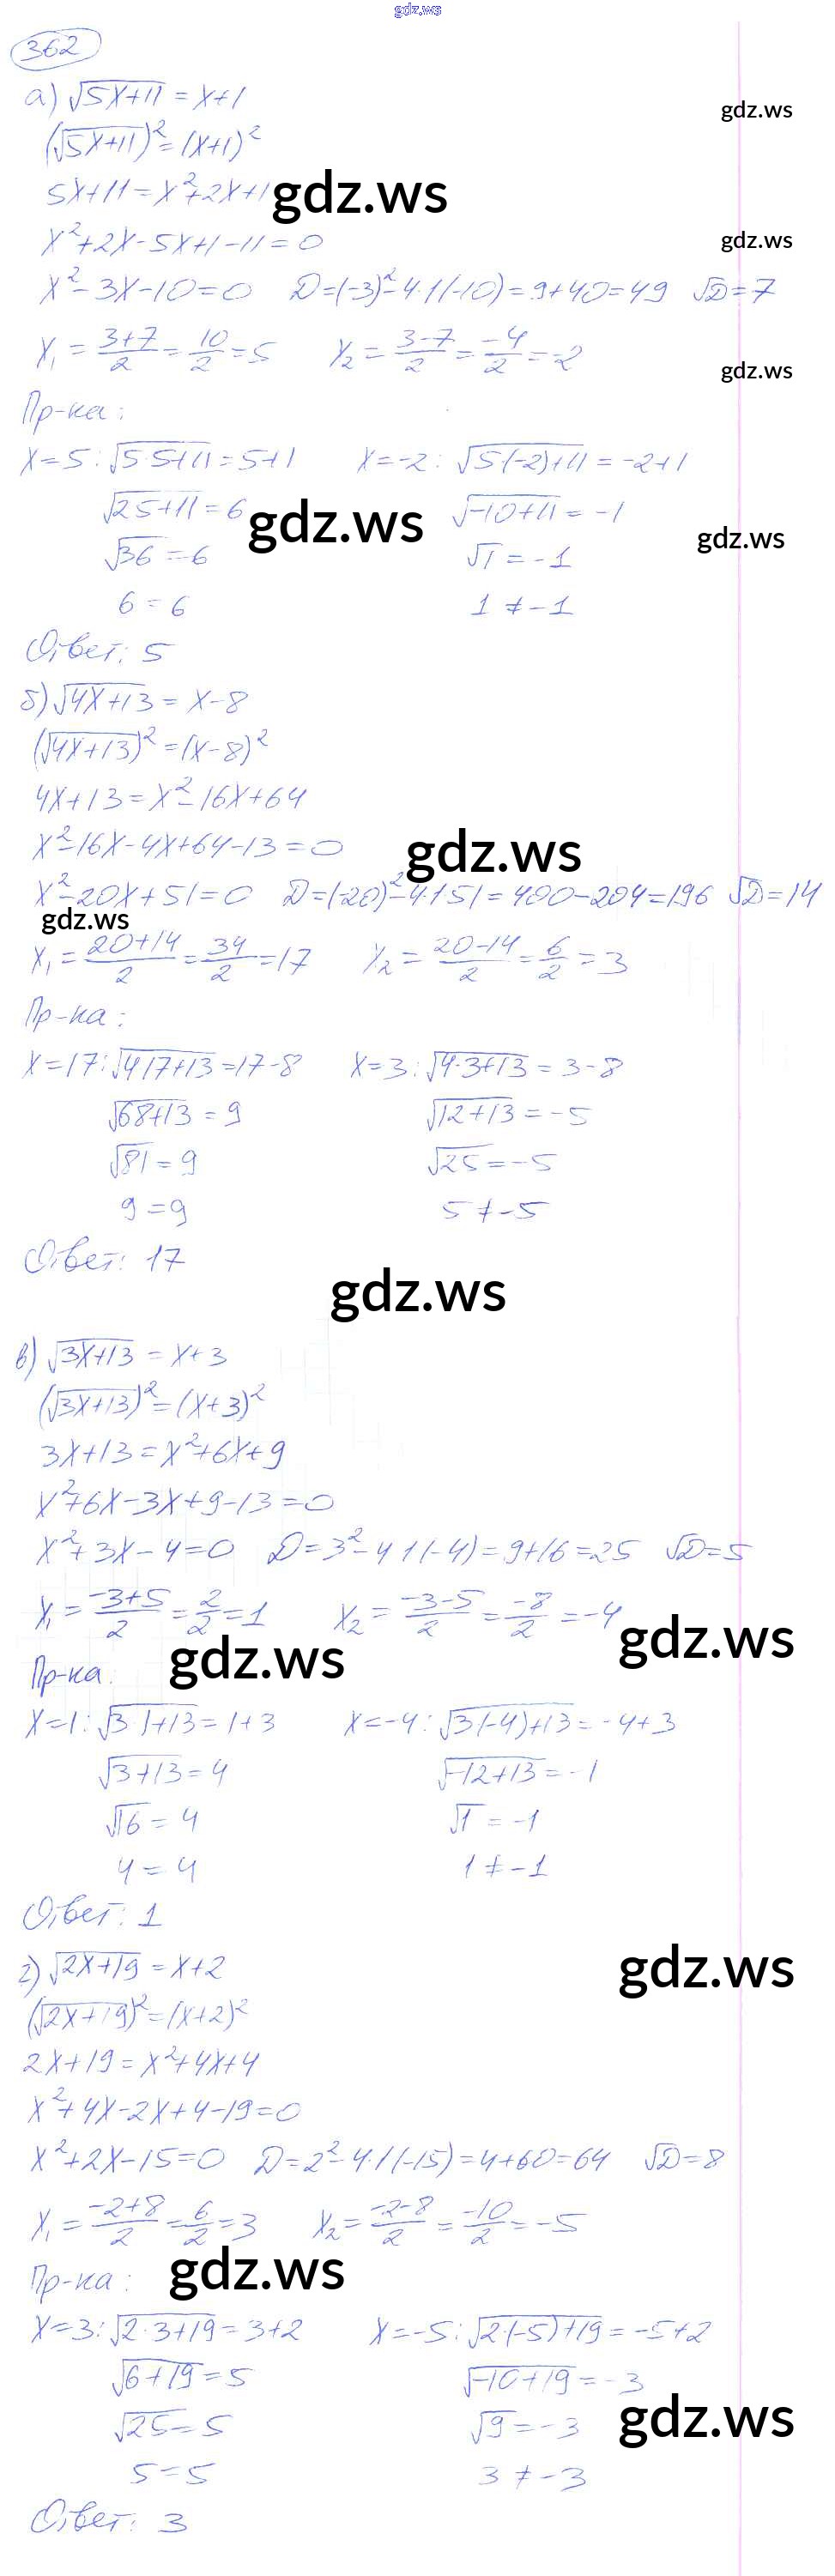 gdz.ws
362
а) √5x+11 = x+1
gdz.ws
(√5x+11)² = (x+1)²
5x+11 = x²+2x+1
gdz.ws
x²+2x-5x+1-11=0
gdz.ws
x²-3x-10=0 D=(-3)²-4·1(-10)=9+40=49 √D=7
x₁ = 3+7/2 = 10/2 = 5 x₂ = 3-7/2 = -4/2 = -2
gdz.ws
Пр-ка:
x=5: √5·5+11 = 5+1 x=-2: √5(-2)+11 = -2+1
√25+11 = 6 √-10+11 = -1
gdz.ws
gdz.ws
√36 = 6 √1 = -1
6 = 6 1 ≠ -1
Ответ: 5
б) √4x+13 = x-8
(√4x+13)² = (x-8)²
4x+13 = x²-16x+64
x²-16x-4x+64-13=0
gdz.ws
x²-20x+51=0 D=(-20)²-4·1·51=400-204=196 √D=14
gdz.ws
x₁ = 20+14/2 = 34/2 = 17 x₂ = 20-14/2 = 6/2 = 3
Пр-ка:
x=17: √4·17+13 = 17-8 x=3: √4·3+13 = 3-8
√68+13 = 9 √12+13 = -5
√81 = 9 √25 = -5
9 = 9 5 ≠ -5
Ответ: 17
gdz.ws
в) √3x+13 = x+3
(√3x+13)² = (x+3)²
3x+13 = x²+6x+9
x²+6x-3x+9-13=0
x²+3x-4=0 D=3²-4·1(-4)=9+16=25 √D=5
x₁ = -3+5/2 = 2/2 = 1 x₂ = -3-5/2 = -8/2 = -4
gdz.ws
gdz.ws
Пр-ка:
x=1: √3·1+13 = 1+3 x=-4: √3(-4)+13 = -4+3
√3+13 = 4 √-12+13 = -1
√16 = 4 √1 = -1
4 = 4 1 ≠ -1
Ответ: 1
г) √2x+19 = x+2
gdz.ws
(√2x+19)² = (x+2)²
2x+19 = x²+4x+4
x²+4x-2x+4-19=0
x²+2x-15=0 D=2²-4·1(-15)=4+60=64 √D=8
x₁ = -2+8/2 = 6/2 = 3 x₂ = -2-8/2 = -10/2 = -5
gdz.ws
Пр-ка:
x=3: √2·3+19 = 3+2 x=-5: √2·(-5)+19 = -5+2
√6+19 = 5 √-10+19 = -3
gdz.ws
√25 = 5 √9 = -3
5 = 5 3 ≠ -3
Ответ: 3